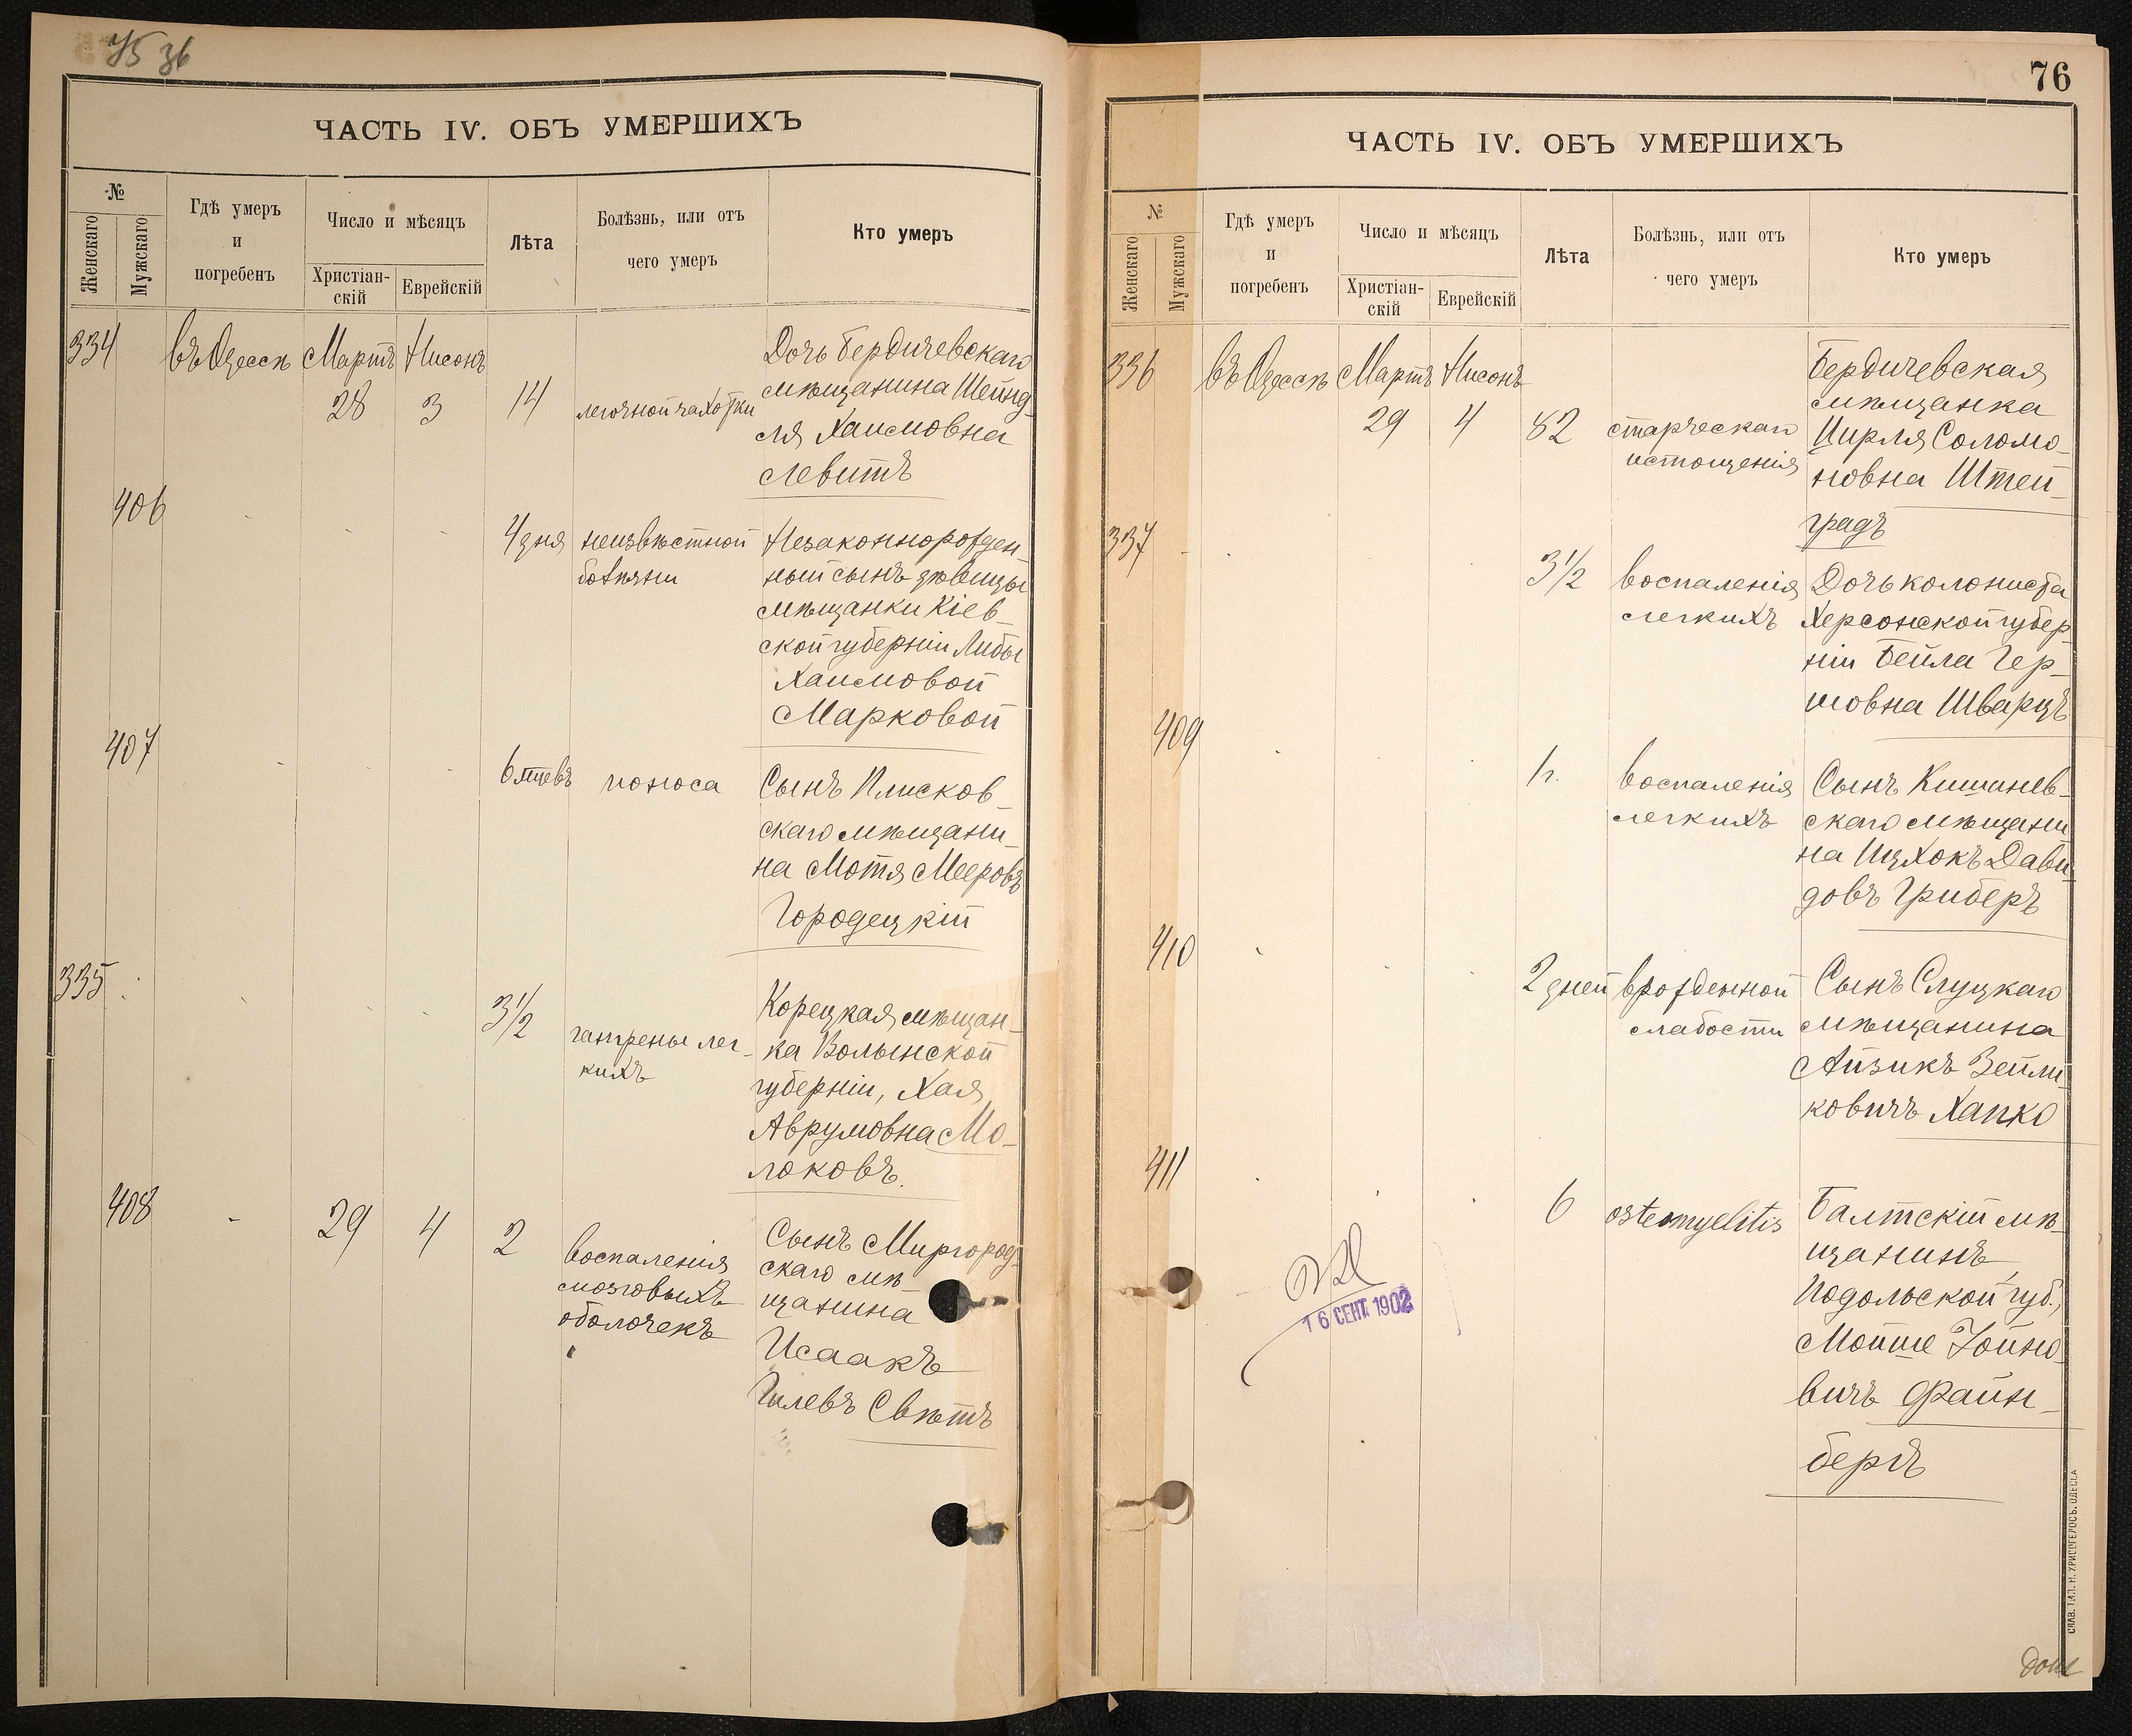 75 36
ЧАСТЬ IV. ОБЪ УМЕРШИХЪ
№
Женскаго
Мужскаго
Гдѣ умеръ
и
погребенъ
Число и мѣсяцъ
Христіан-
скій
Еврейскій
Лѣта
Болѣзнь, или отъ
чего умеръ
Кто умеръ
334
въ Одессѣ Мартъ Нисонъ
28 3 14 легочной чахотки
Дочь Бердичевскаго
мѣщанина Шейнд-
ля Хаимовна
Левитъ
406
4 дня неизвѣстной
болѣзни
Незаконнорожден-
ный сынъ дѣвицы
мѣщанки Кіев-
ской губерніи Либы
Хаимовой
Марковой
407
6 мцевъ поноса
Сынъ Плисков-
скаго мѣщани-
на Мотя Мееровъ
Городецкій
335
3½ гангрены лег-
кихъ
Корецкая мѣщан-
ка Волынской
губерніи, Хая
Аврумовна Мо-
локовъ.
408
29 4 2 воспаленія
мозговыхъ
оболочекъ
Сынъ Миргород-
скаго мѣ-
щанина
Исаакъ
Гилевъ Свѣтъ
76
ЧАСТЬ IV. ОБЪ УМЕРШИХЪ
№
Женскаго
Мужскаго
Гдѣ умеръ
и
погребенъ
Число и мѣсяцъ
Христіан-
скій
Еврейскій
Лѣта
Болѣзнь, или отъ
чего умеръ
Кто умеръ
336
въ Одессѣ Мартъ Нисонъ
29 4 82 старческаго
истощенія
Бердичевская
мѣщанка
Цирля Соломо-
новна Штей-
градъ
337
3½ воспаленія
легкихъ
Дочь колониста
Херсонской губер-
ніи Бейла Гер-
шовна Шварцъ
409
1 г. воспаленія
легкихъ
Сынъ Кишинев-
скаго мѣщани-
на Ицхокъ Дави-
довъ Гриберъ
410
2 дней врожденной
слабости
Сынъ Слуцкаго
мѣщанина
Айзикъ Зейли-
ковичъ Хапко
411
6 osteomyelitis
Балтскій мѣ-
щанинъ
Подольской губ.,
Мойше Іойно-
вичъ Файн-
бергъ
16 СЕНТ. 1902